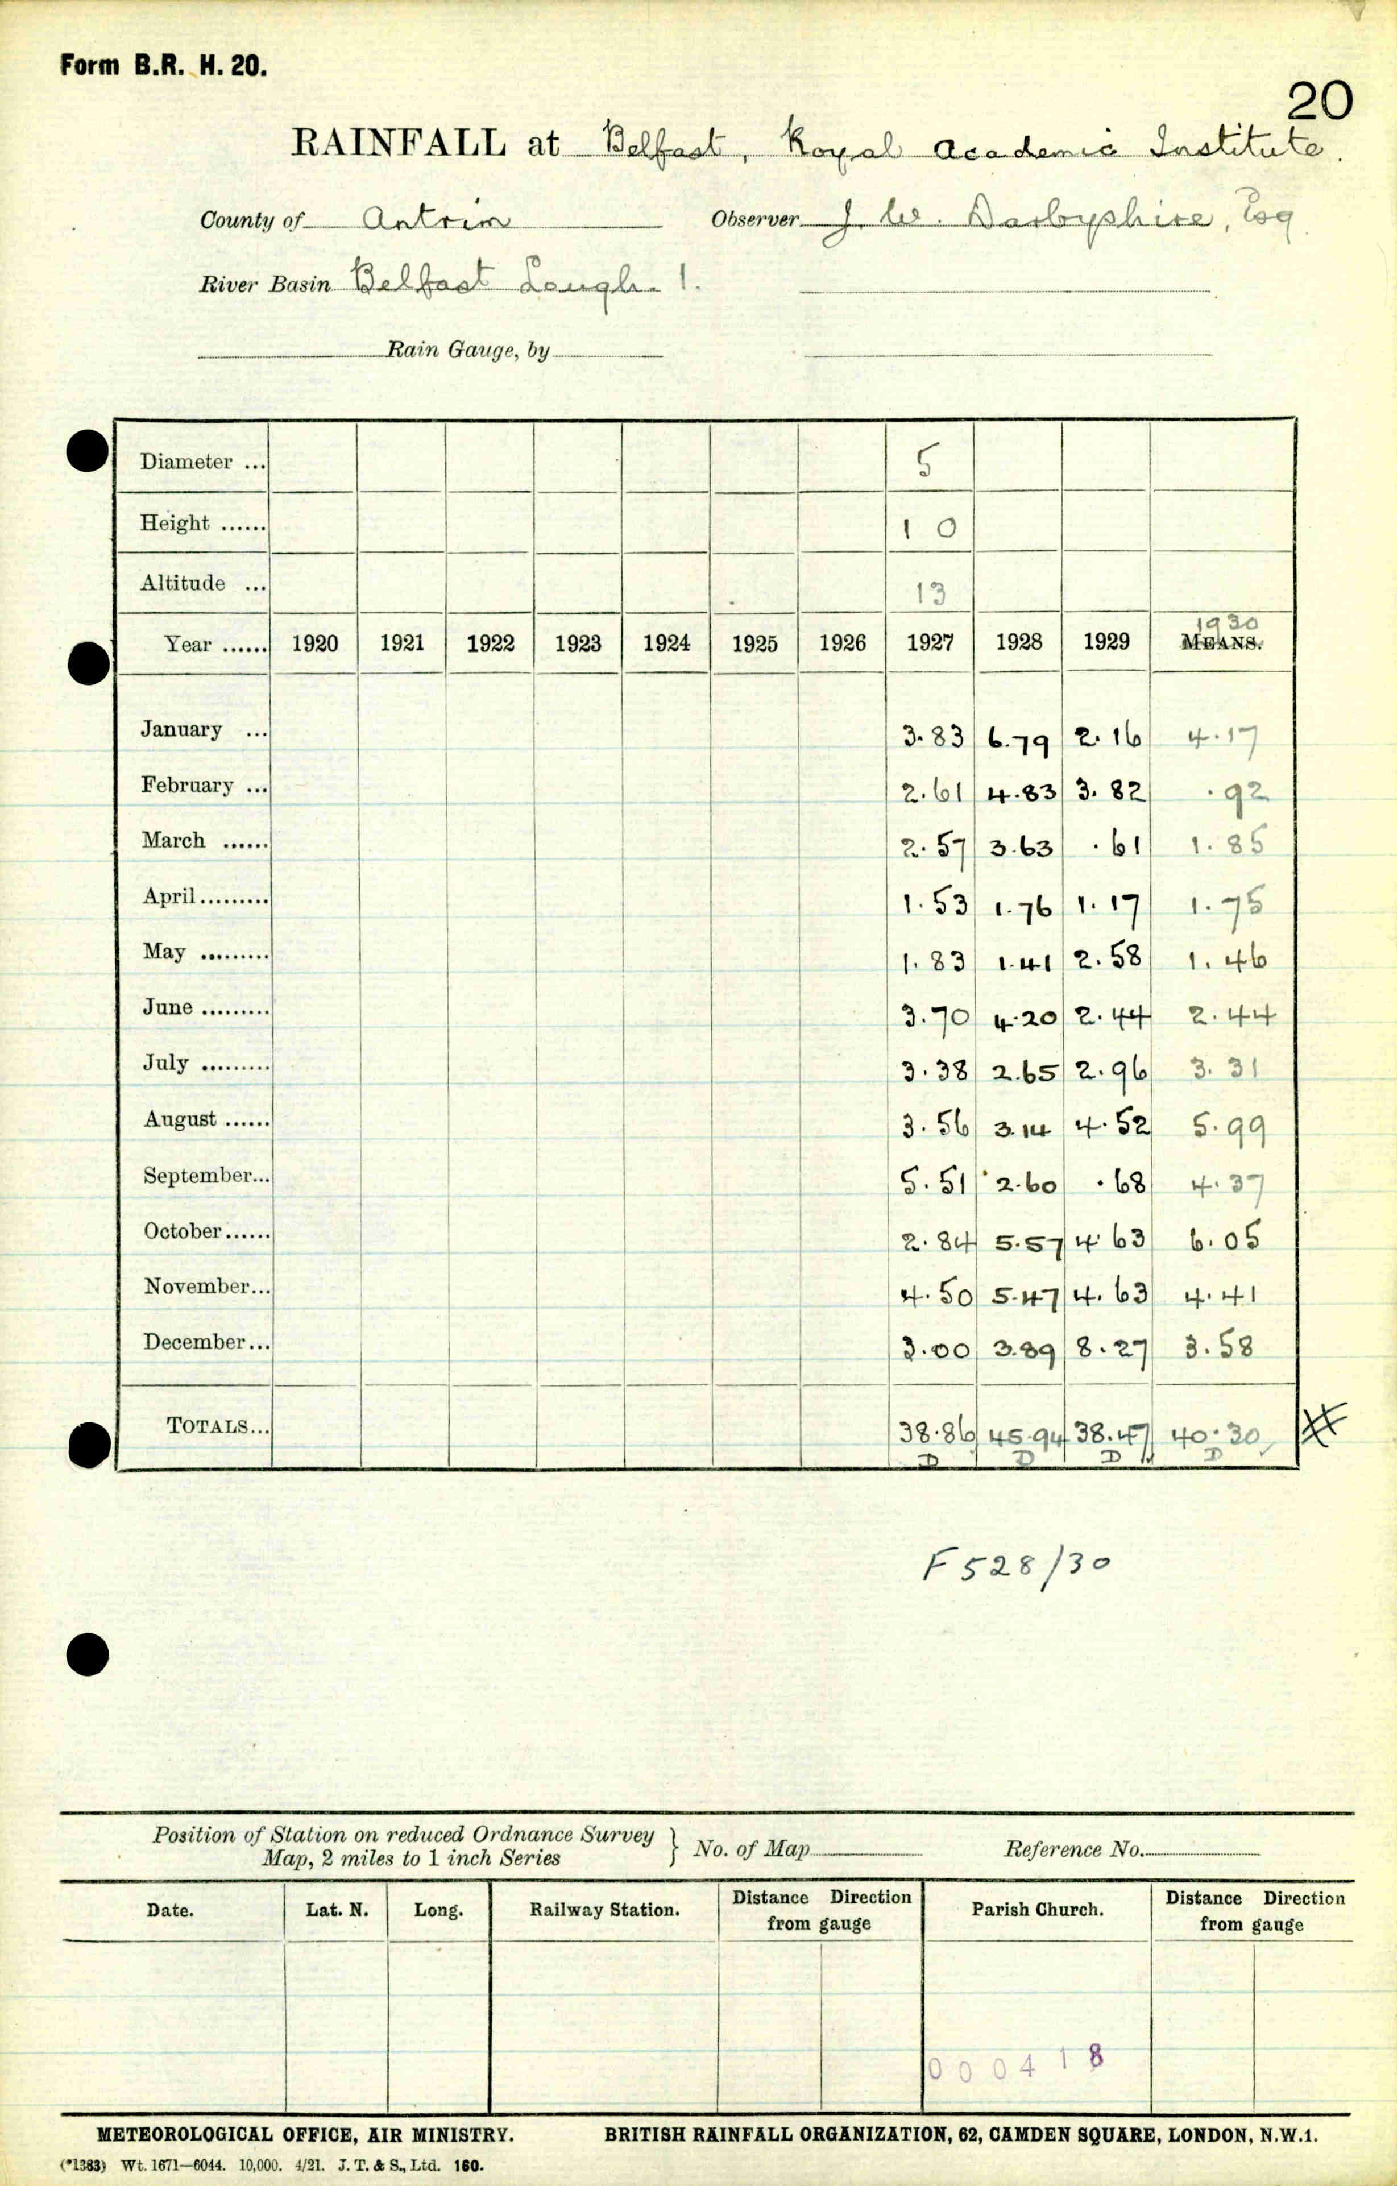 Form B.R. H. 20.
20
RAINFALL at Belfast, Royal Academic Institute.
County of Antrim Observer J. W. Darbyshire, Esq.
River Basin Belfast Lough. 1.
Rain Gauge, by
Diameter ... 5
Height ...... 10
Altitude ... 13
1930
Year ...... 1920 1921 1922 1923 1924 1925 1926 1927 1928 1929 MEANS.
January ... 3.83 6.79 2.16 4.17
February ... 2.61 4.83 3.82 .92
March ...... 2.57 3.63 .61 1.85
April ......... 1.53 1.76 1.17 1.75
May ......... 1.83 1.41 2.58 1.46
June ......... 3.70 4.20 2.44 2.44
July ......... 3.38 2.65 2.96 3.31
August ...... 3.56 3.14 4.52 5.99
September... 5.51 2.60 .68 4.37
October...... 2.84 5.57 4.63 6.05
November... 4.50 5.47 4.63 4.41
December... 3.00 3.89 8.27 3.58
TOTALS... 38.86 45.94 38.47 40.30
D D D D
F 528/30
Position of Station on reduced Ordnance Survey
Map, 2 miles to 1 inch Series } No. of Map Reference No.
Date. Lat. N. Long. Railway Station. Distance Direction from gauge Parish Church. Distance Direction from gauge
000418
METEOROLOGICAL OFFICE, AIR MINISTRY. BRITISH RAINFALL ORGANIZATION, 62, CAMDEN SQUARE, LONDON, N.W.1.
(*1383) Wt. 1671—6044. 10,000. 4/21. J. T. & S., Ltd. 160.